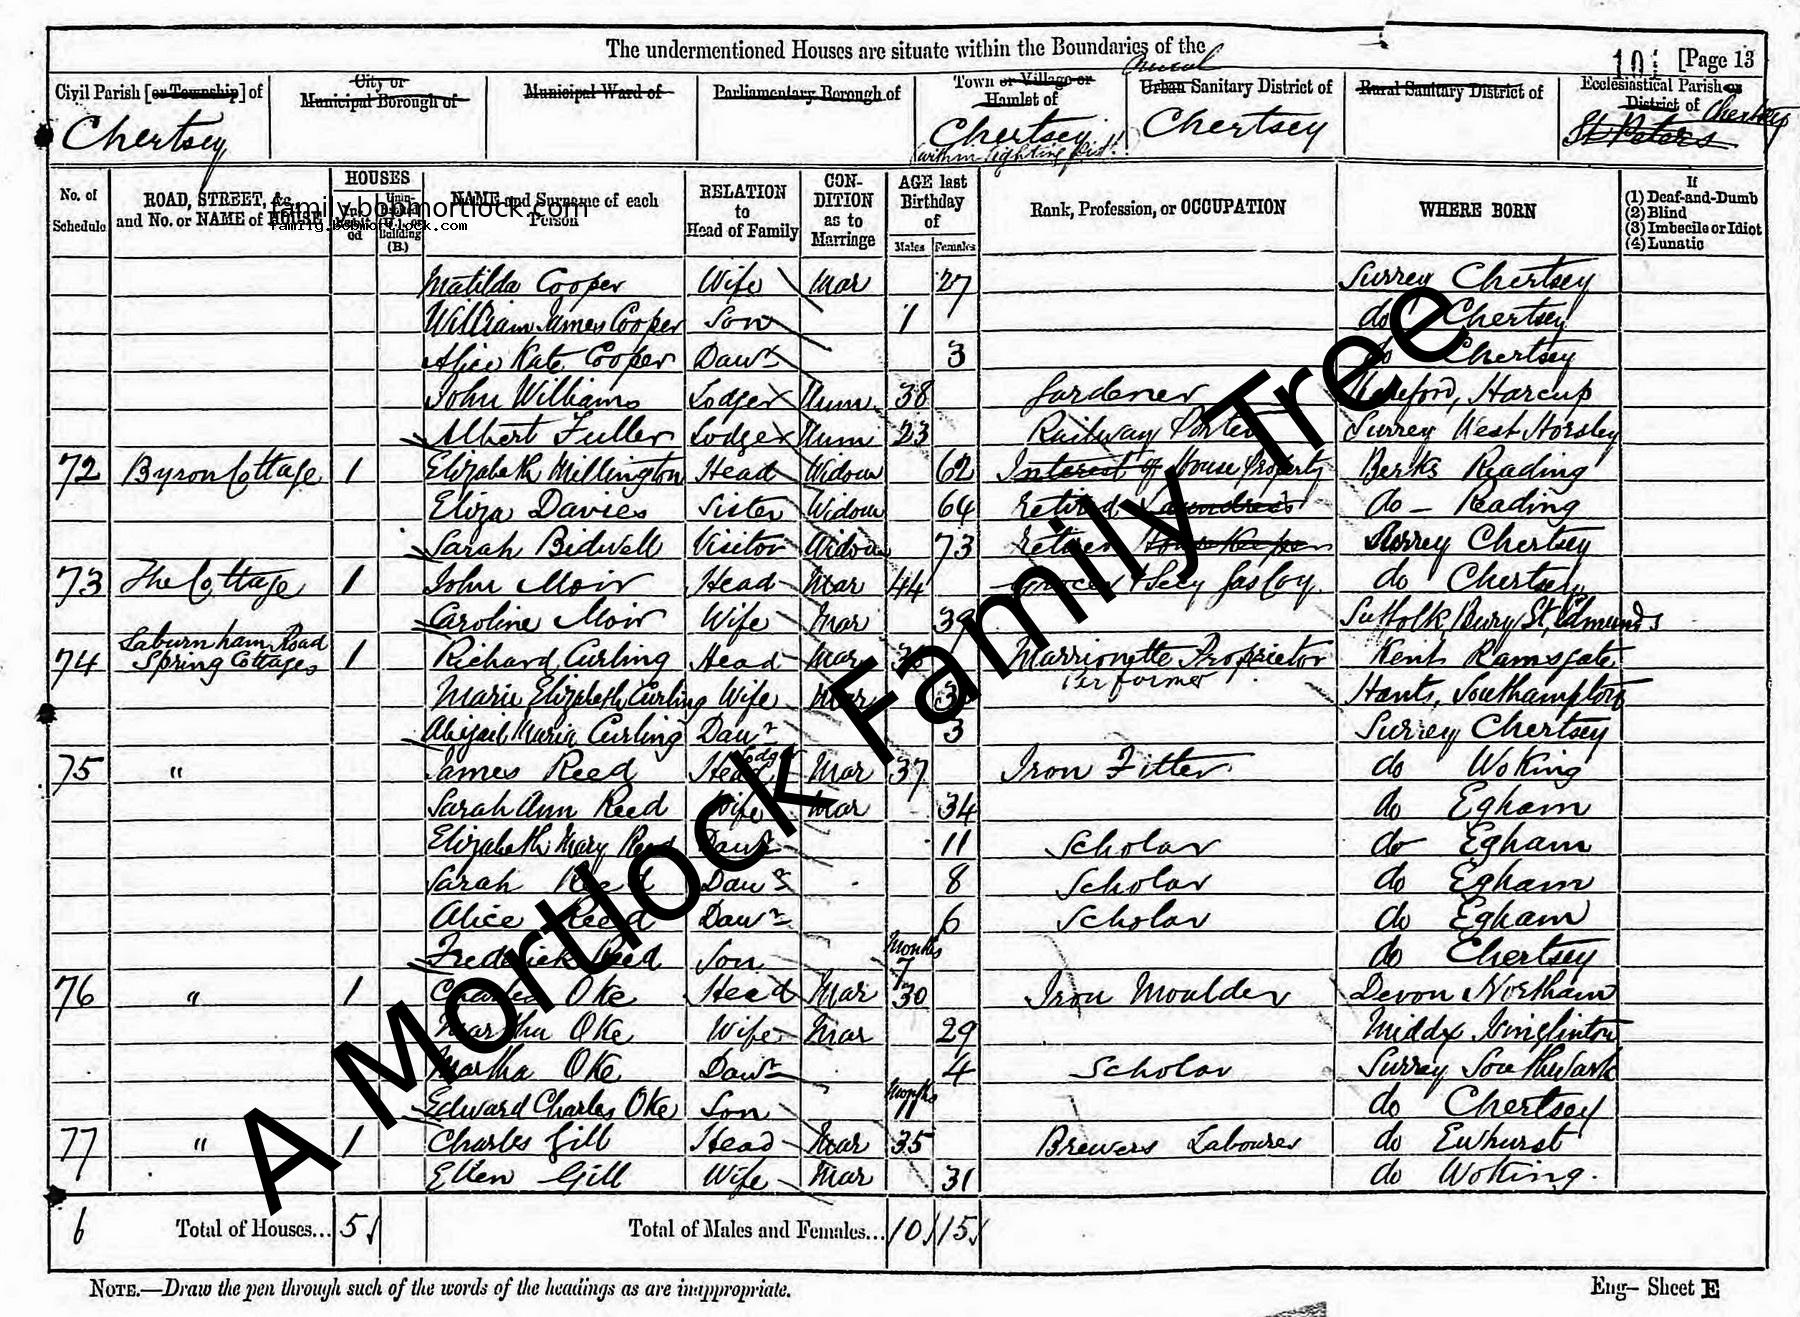 The undermentioned Houses are situate within the Boundaries of the
[Page 13
Civil Parish [or Township] of
City or Municipal Borough of
Municipal Ward of
Parliamentary Borough of
Town or Village or Hamlet of
Rural
Urban Sanitary District of
Rural Sanitary District of
Ecclesiastical Parish or District of
Chertsey
Chertsey
(within lighting Dist.)
Chertsey
St Peters Chertsey
No. of Schedule
ROAD, STREET, &c., and No. or NAME of HOUSE
HOUSES
(B.)
NAME and Surname of each Person
RELATION to Head of Family
CONDITION as to Marriage
AGE last Birthday of
Males
Females
Rank, Profession, or OCCUPATION
WHERE BORN
If
(1) Deaf-and-Dumb
(2) Blind
(3) Imbecile or Idiot
(4) Lunatic
family.bobmortlock.com
family.bobmortlock.com
Matilda Cooper Wife Mar 27 Surrey Chertsey
William James Cooper Son 7 do Chertsey
Alice Kate Cooper Dawr 3 do Chertsey
John Williams Lodger Unm 38 Gardener Hereford, Harcup
Albert Fuller Lodger Unm 23 Railway Porter Surrey West Horsley
72 Byron Cottage 1 Elizabeth Millington Head Widow 62 Interest of House Property Berks Reading
Eliza Davies Sister Widow 64 Retired Laundress do – Reading
Sarah Bidwell Visitor Widow 73 Retired House Keeper Surrey Chertsey
73 The Cottage 1 John Moir Head Mar 44 Grocer & Secy Gas Coy. do Chertsey
Caroline Moir Wife Mar 39 Suffolk, Bury St. Edmunds
Laburnham Road
74 Spring Cottages 1 Richard Curling Head Mar Marrionette Proprietor Kent Ramsgate
Performer
Maria Elizabeth Curling Wife Mar Hants, Southampton
Abigail Maria Curling Dawr 3 Surrey Chertsey
75 " James Reed Head Lodger Mar 37 Iron Fitter do Woking
Sarah Ann Reed Wife Mar 34 do Egham
Elizabeth Mary Reed Dawr 11 Scholar do Egham
Sarah Reed Dawr 8 Scholar do Egham
Alice Reed Dawr 6 Scholar do Egham
Frederick Reed Son Months 7 do Chertsey
76 " 1 Charles Oke Head Mar 30 Iron Moulder Devon Northam
Martha Oke Wife Mar 29 Middx
Martha Oke Dawr 4 Scholar Surrey Southwark
Edward Charles Oke Son Months do Chertsey
77 " 1 Charles Gill Head Mar 35 Brewers Labourer do Ewhurst
Ellen Gill Wife Mar 31 do Woking.
6 Total of Houses... 5 Total of Males and Females... 10 15
NOTE.—Draw the pen through such of the words of the headings as are inappropriate.
Eng– Sheet E
A Mortlock Family Tree